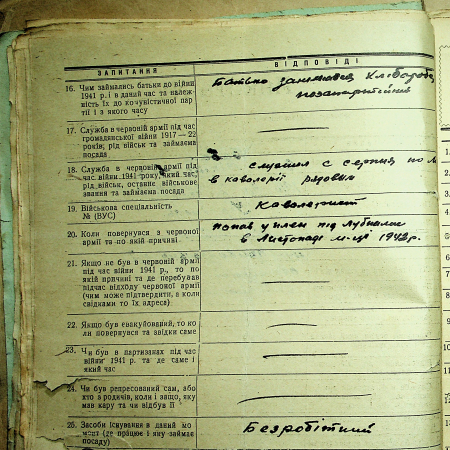 ЗАПИТАННЯ
ВІДПОВІДІ
16. Чим займались батьки до війни
1941 р. і в даний час та належ-
ність їх до комуністичної пар-
тії і з якого часу
Батько займався
позапартійний
17. Служба в червоній армії під час
громадянської війни 1917—22
років, рід військ та займаєма
посада
18. Служба в червоній армії під
час війни 1941 року, який час,
рід військ, останнє військове
звання та займаєма посада
служив с серпня по
в кавалерії рядовим
19. Військова спеціяльність
№ (ВУС)
Кавалерист
20. Коли повернувся з червоної
армії та по якій причині
попав у плен під
в Листопаді м-ці 1942 р.
21. Якщо не був в червоній армії
під час війни 1941 р., то по
якій причині та де перебував
підчас відходу червоної армії
(чим може підтвердити, а коли
свідками то їх адреса)
22. Якщо був евакуйований, то ко-
ли повернувся та звідки саме
23. Чи був в партизанах під час
війни 1941 р. та де саме і
який час
24. Чи був репресований сам, або
хто з родичів, коли і защо, яку
мав кару та чи відбув її
25. Засоби існування в даний мо-
мент (де працює і яку займає
посаду)
Безробітний